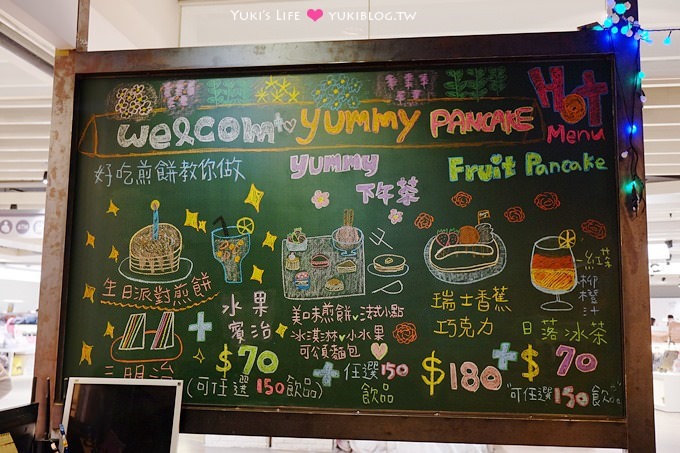 YUKI'S LIFE ♥ YUKIBLOG.TW
Welcom to YUMMY PANCAKE
HOT
Menu
好吃煎餅教你做
YUMMY
下午茶
Fruit Pancake
生日派對煎餅
水果
賓治
美口味煎餅♥法式小點
冰淇淋♥小水果
可頌麵包
瑞士香蕉
巧克力
紅茶
柳橙汁
日落冰茶
三明治
+ $70
(可任選150飲品)
+任選150
飲品
$180
+ $70
可任選150飲品